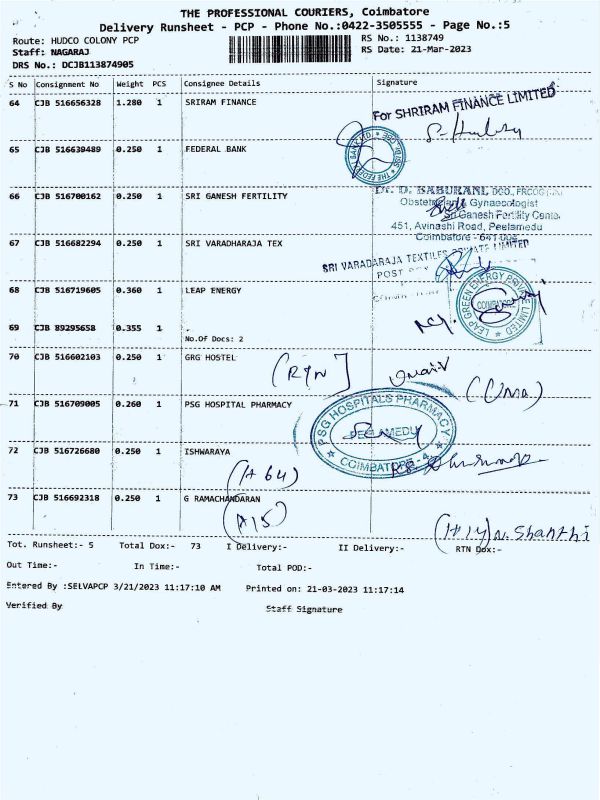 THE PROFESSIONAL COURIERS, Coimbatore
Delivery Runsheet - PCP - Phone No.:0422-3505555 - Page No.:5
Route: HUDCO COLONY PCP
RS No.: 1138749
Staff: NAGARAJ
RS Date: 21-Mar-2023
DRS No.: DCJB113874905
S No Consignment No Weight PCS Consignee Details Signature
64 CJB 516656328 1.280 1 SRIRAM FINANCE
For SHRIRAM FINANCE LIMITED
65 CJB 516639489 0.250 1 FEDERAL BANK
THE FEDERAL BANK LTD.
66 CJB 516700162 0.250 1 SRI GANESH FERTILITY
Dr. D. BABURANI, DGO.,
Obstetrician & Gynaecologist
Sri Ganesh Fertility Center
451, Avinashi Road, Peelamedu
Coimbatore - 641 004
67 CJB 516682294 0.250 1 SRI VARADHARAJA TEX
SRI VARADARAJA TEXTILES PRIVATE LIMITED
POST
68 CJB 516719605 0.360 1 LEAP ENERGY
LEAP GREEN ENERGY PRIVATE LIMITED
COIMBATORE
69 CJB 89295658 0.355 1 .
No.Of Docs: 2
70 CJB 516602103 0.250 1 GRG HOSTEL
(RTN)
(Uma)
71 CJB 516709005 0.260 1 PSG HOSPITAL PHARMACY
PSG HOSPITALS PHARMACY
PEELAMEDU
COIMBATORE - 4
72 CJB 516726680 0.250 1 ISHWARAYA
(A 64)
73 CJB 516692318 0.250 1 G RAMACHANDARAN
(A15)
N. Shanthi
Tot. Runsheet:- 5 Total Dox:- 73 I Delivery:- II Delivery:- RTN Dox:-
Out Time:- In Time:- Total POD:-
Entered By :SELVAPCP 3/21/2023 11:17:10 AM Printed on: 21-03-2023 11:17:14
Verified By Staff Signature